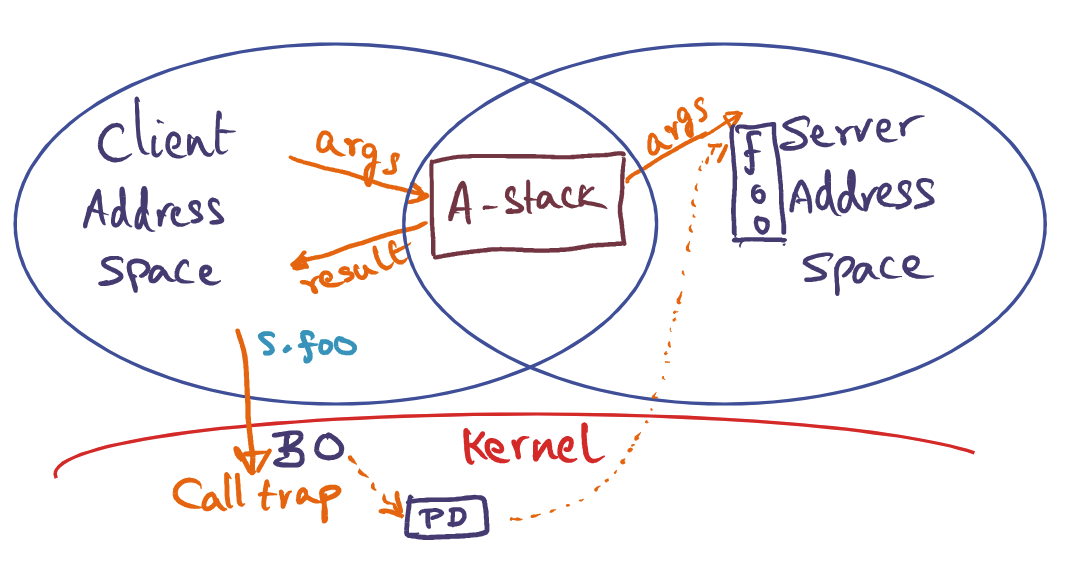 Client
Address
Space
args
result
A-stack
args
foo
Server
Address
Space
s.foo
Kernel
BO
Call trap
PD